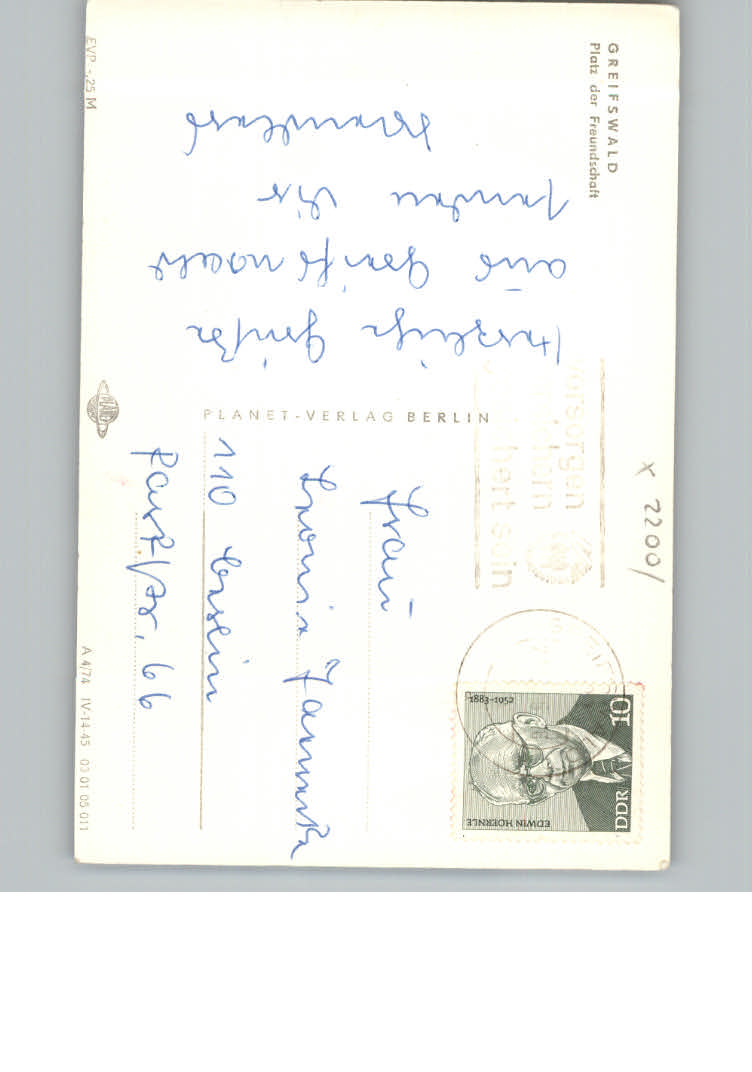 GREIFSWALD
Platz der Freundschaft
Herzliche Grüße
aus Greifswald
senden Dir
EVP -,25 M
PLANET-VERLAG BERLIN
PLANET
Frau
110 Berlin
Parkstr. 66
x 2200/
versorgen
sein
1883-1952
EDWIN HOERNLE
DDR 10
A 4/74 IV-14-45 03 01 05 011